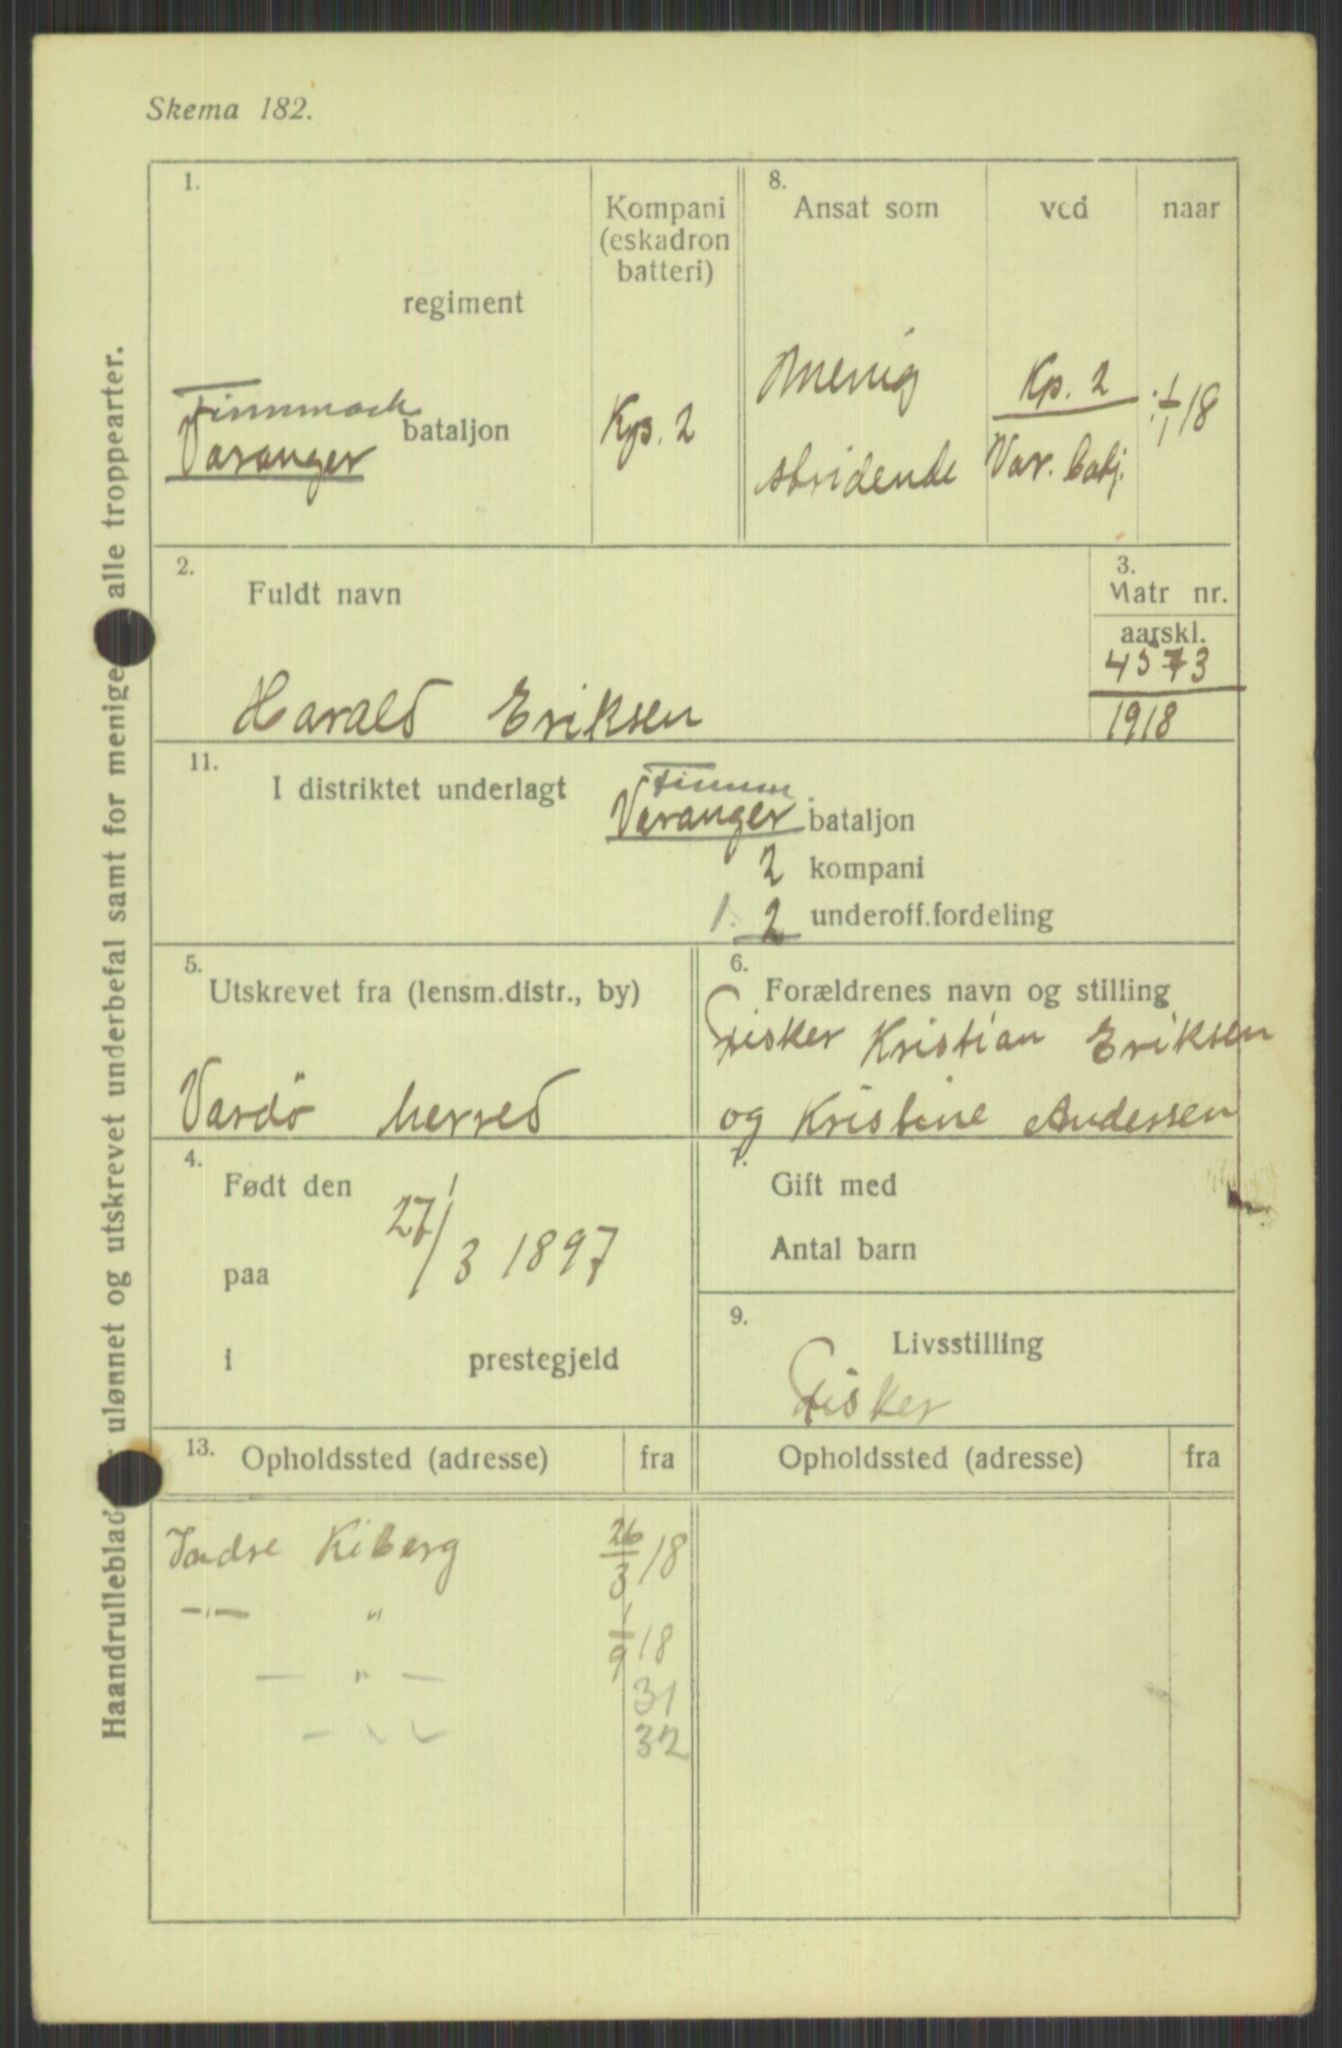 Skema 182.
Haandrulleblad ulønnet og utskrevet underbefal samt for menige alle troppearter.
1.
regiment
Finnmark
Varanger bataljon
Kompani
(eskadron
batteri)
Kp. 2
8.
Ansat som
ved
naar
Menig
stridende
Kp. 2
Var. batj.
1/1 18
2.
Fuldt navn
Harald Eriksen
3.
Matr nr.
aarskl.
4573
1918
11.
I distriktet underlagt
Finnm.
Varanger bataljon
2 kompani
1. 2 underoff.fordeling
5.
Utskrevet fra (lensm.distr., by)
Vardö herred
6.
Forældrenes navn og stilling
Fisker Kristian Eriksen
og Kristine Andersen
4.
Født den
27/3 1897
paa
i prestegjeld
7.
Gift med
Antal barn
9.
Livsstilling
Fisker
13.
Opholdssted (adresse) fra
Opholdssted (adresse) fra
Indre Kiberg 26/3 18
—"— " 1/9 18
— " — 31
32